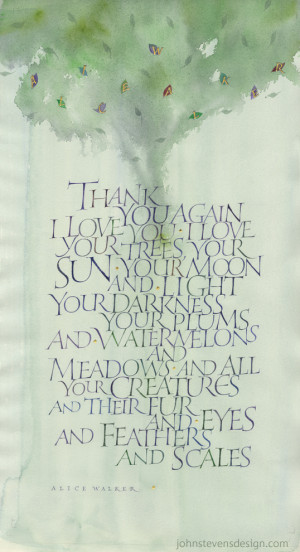 THANK
YOU AGAIN
I LOVE YOU · I LOVE
YOUR TREES, YOUR
SUN · YOUR MOON
AND LIGHT
YOUR DARKNESS
YOUR PLUMS
AND · WATERMELONS
AND
MEADOWS · AND ALL
YOUR CREATURES
AND THEIR FUR
AND · EYES
AND FEATHERS
AND SCALES
ALICE WALKER
johnstevensdesign.com